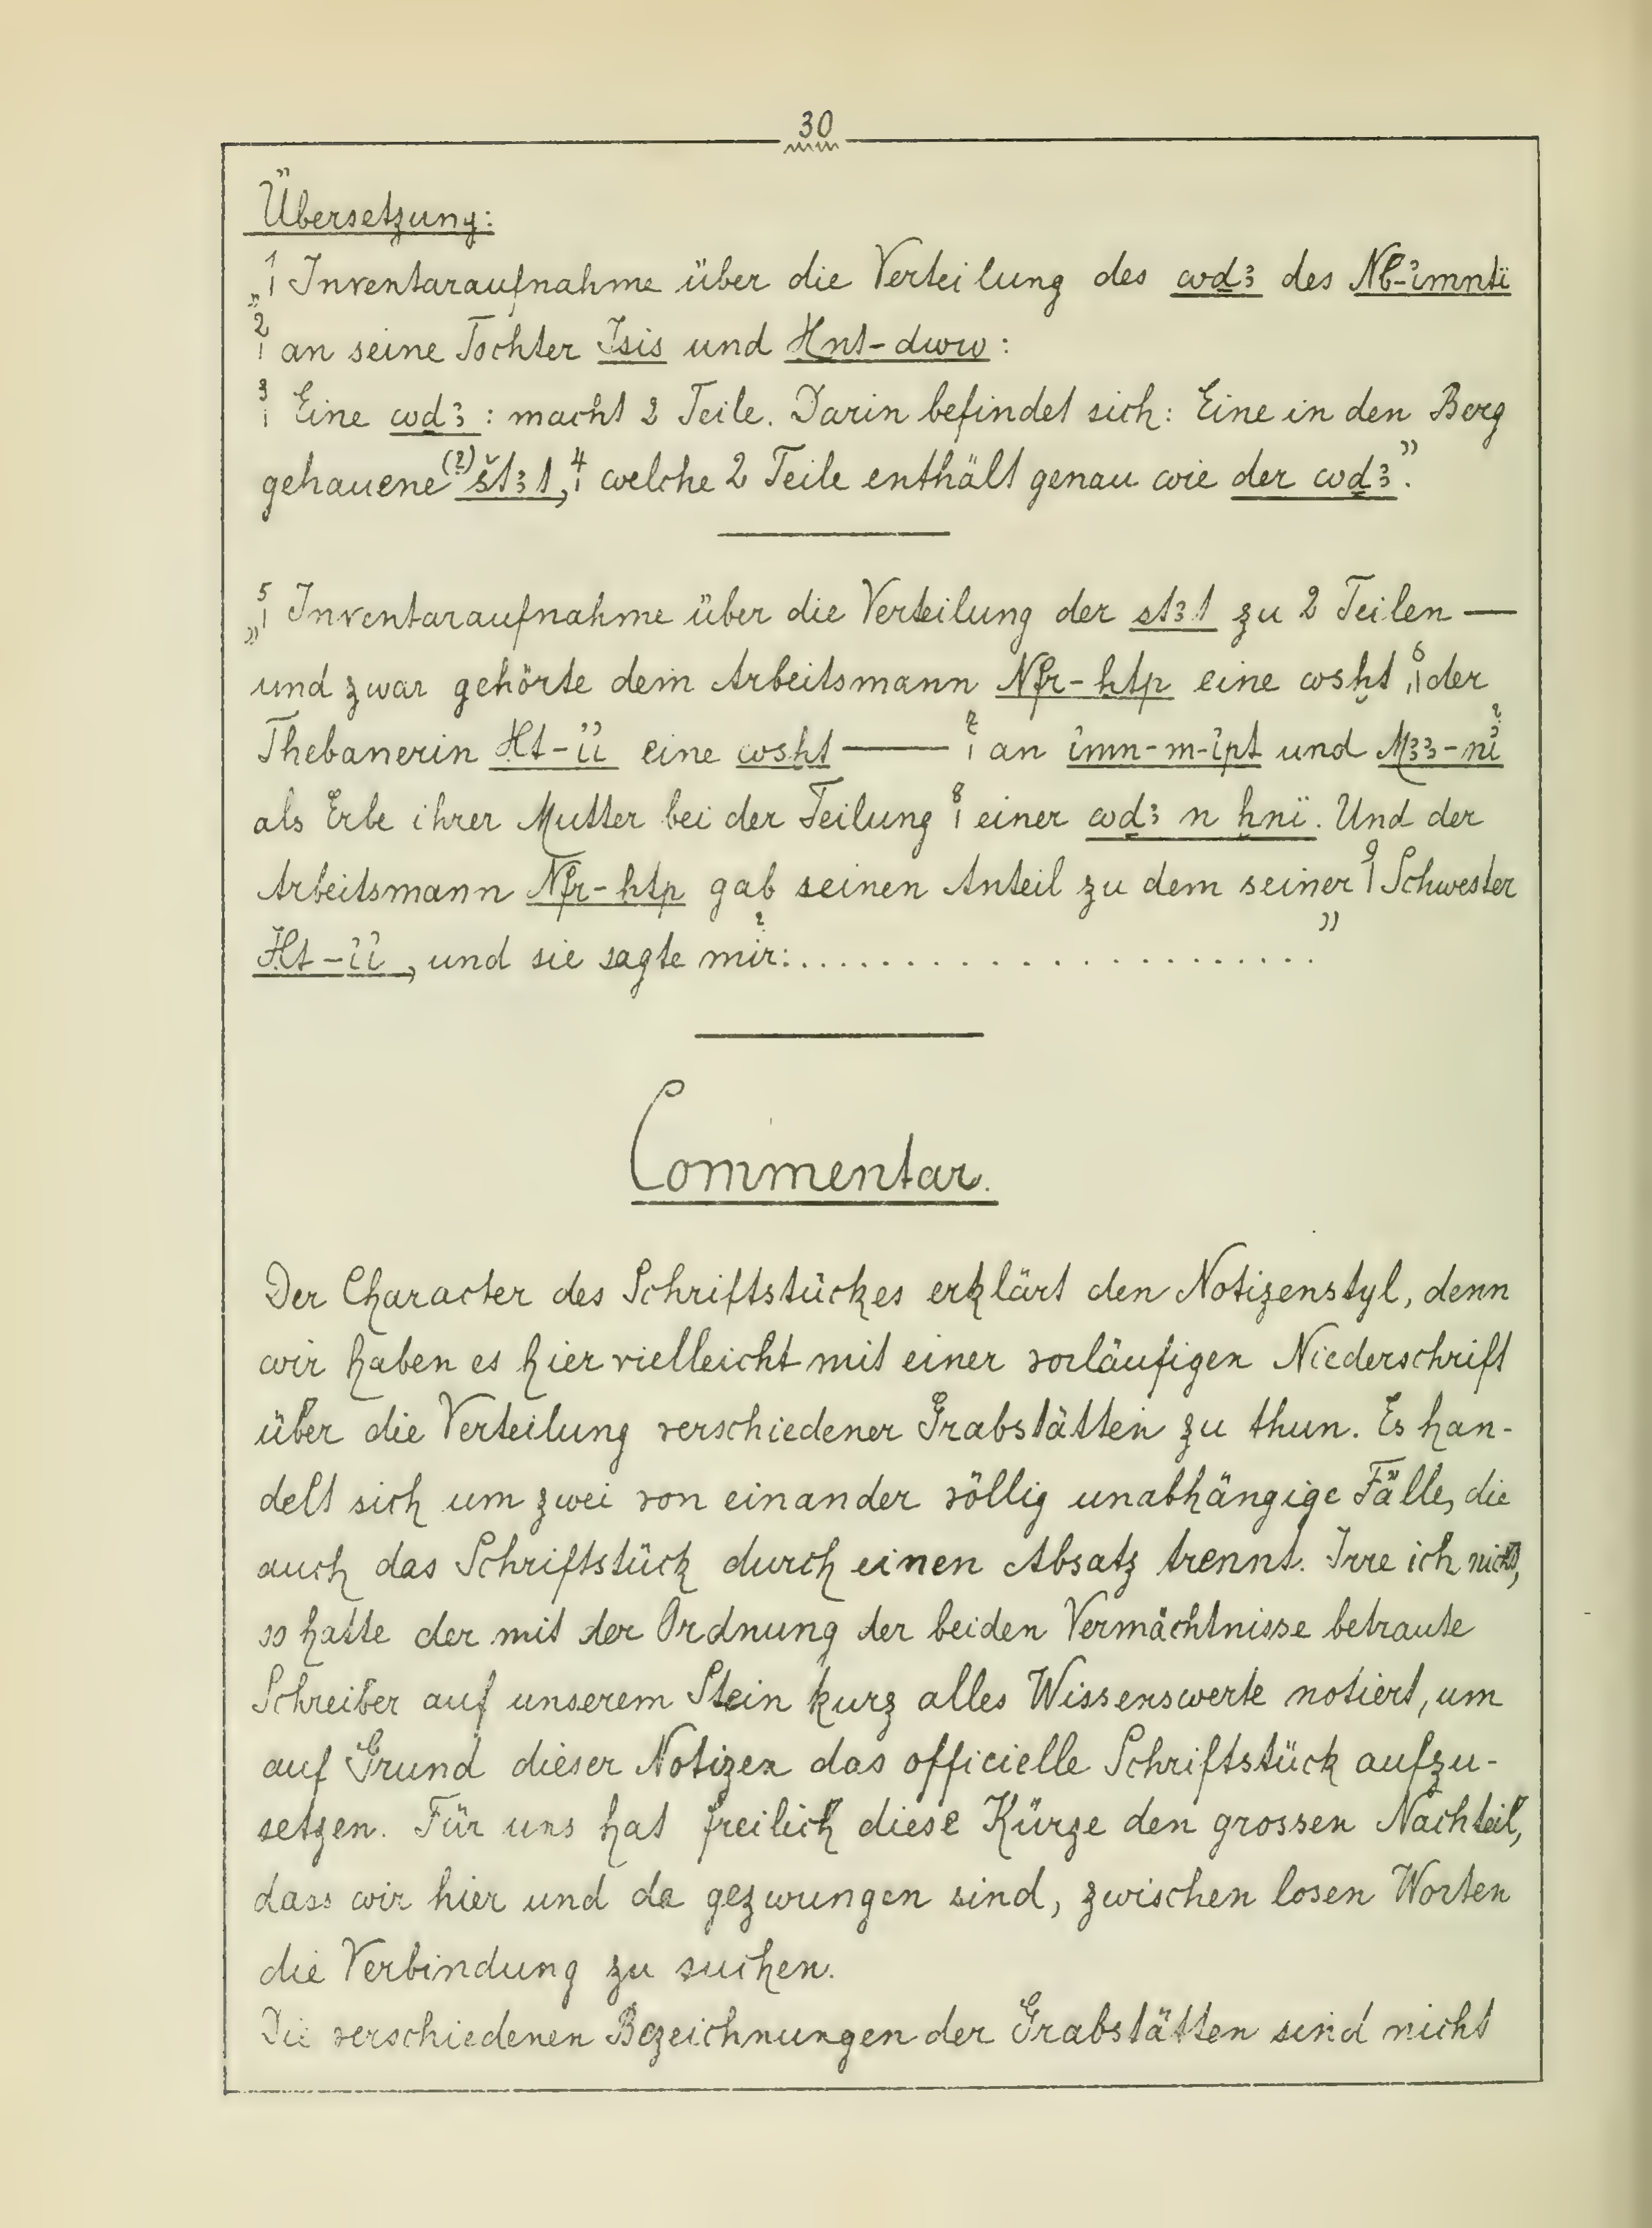 30
Übersetzung:
„¹ Inventaraufnahme über die Verteilung des wḏꜣ des Nb-imntï
² an seine Tochter Isis und Ḥnt-dww:
³ Eine wḏꜣ: macht 2 Teile. Darin befindet sich: Eine in den Berg
gehauene (?) štꜣt,⁴ welche 2 Teile enthält genau wie der wḏꜣ”.
„⁵ Inventaraufnahme über die Verteilung der štꜣt zu 2 Teilen —
und zwar gehörte dem Arbeitsmann Nfr-ḥtp eine wsḫt,⁶ der
Thebanerin Ḥt-ỉỉ eine wsḫt —⁷ an ỉmn-m-ỉpt und Mꜣꜣ-nỉ?
als Erbe ihrer Mutter bei der Teilung⁸ einer wḏꜣ n ḫnï. Und der
Arbeitsmann Nfr-ḥtp gab seinen Anteil zu dem seiner⁹ Schwester
Ḥt-ỉỉ, und sie sagte mir?:......................”
Commentar.
Der Character des Schriftstückes erklärt den Notizenstyl, denn
wir haben es hier vielleicht mit einer vorläufigen Niederschrift
über die Verteilung verschiedener Grabstätten zu thun. Es han-
delt sich um zwei von einander völlig unabhängige Fälle, die
auch das Schriftstück durch einen Absatz trennt. Irre ich nicht,
so hatte der mit der Ordnung der beiden Vermächtnisse betraute
Schreiber auf unserem Stein kurz alles Wissenswerte notiert, um
auf Grund dieser Notizen das officielle Schriftstück aufzu-
setzen. Für uns hat freilich diese Kürze den grossen Nachteil,
dass wir hier und da gezwungen sind, zwischen losen Worten
die Verbindung zu suchen.
Die verschiedenen Bezeichnungen der Grabstätten sind nicht